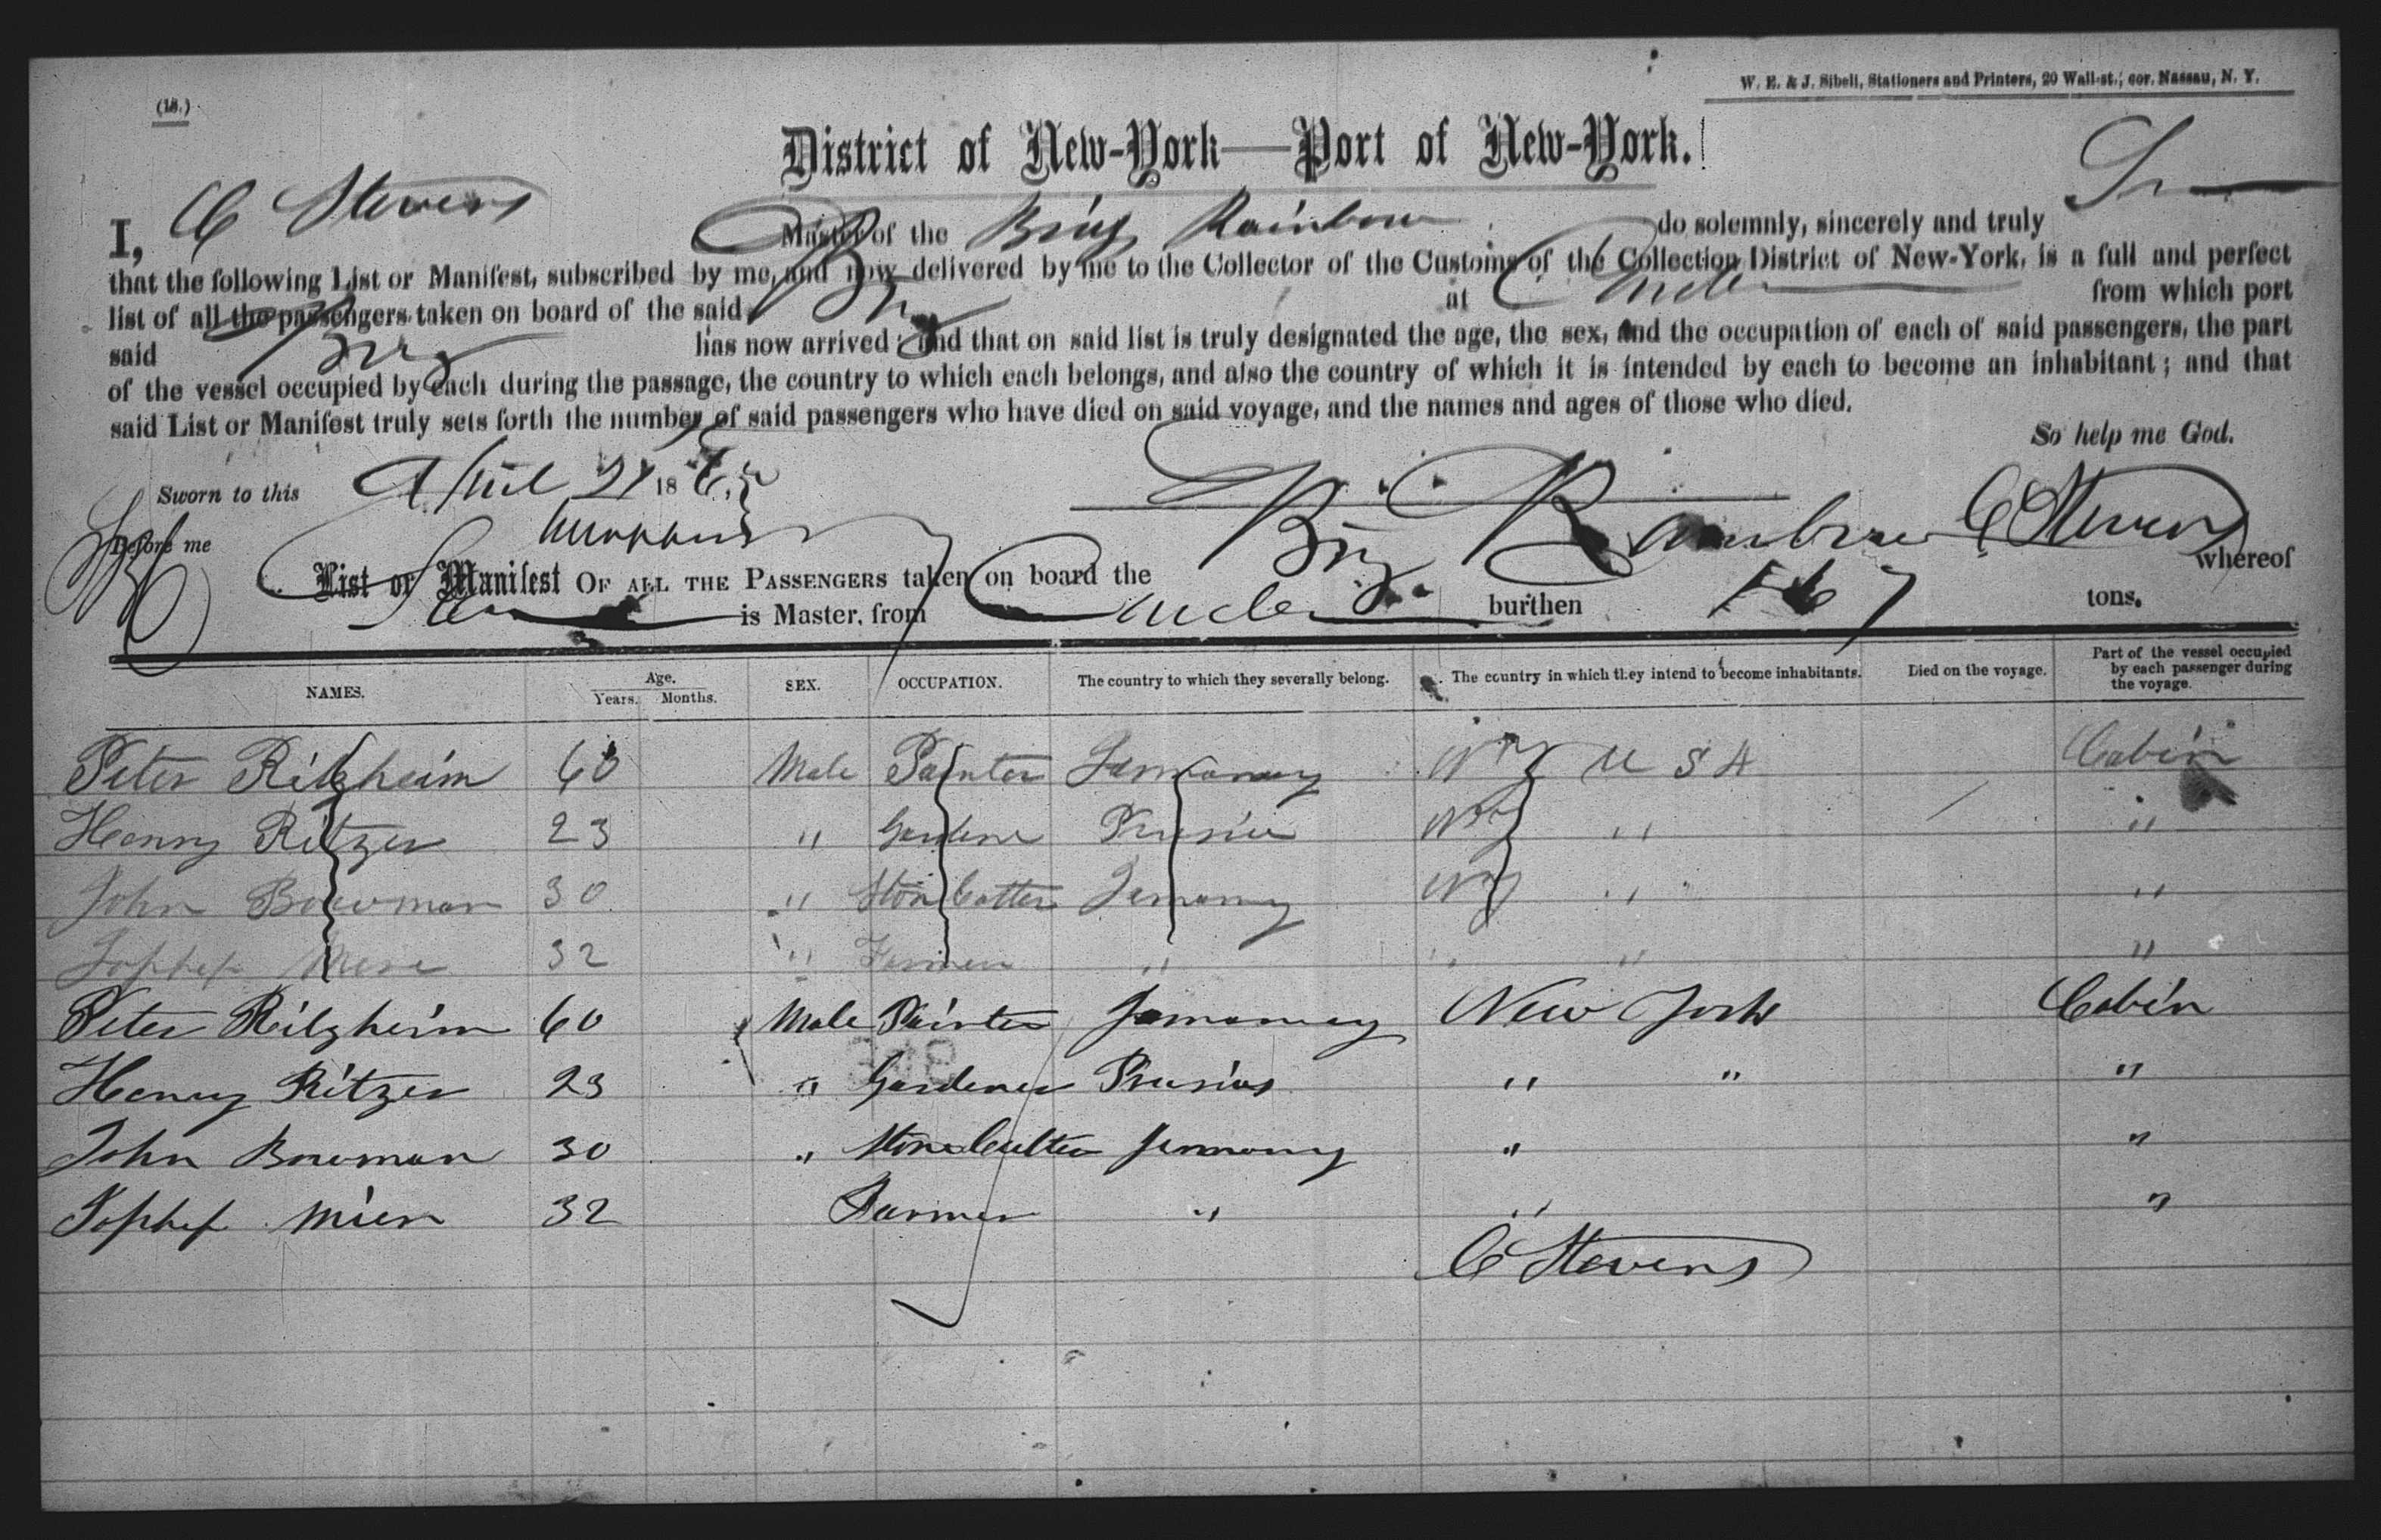 (18.)
W. E. & J. Sibell, Stationers and Printers, 20 Wall-st., cor. Nassau, N. Y.
District of New-York—Port of New-York.
I, C Stevens Master of the Brig Rainbow do solemnly, sincerely and truly
that the following List or Manifest, subscribed by me, and now delivered by me to the Collector of the Customs of the Collection District of New-York, is a full and perfect
list of all the passengers taken on board of the said Brig at from which port
said Brig has now arrived; and that on said list is truly designated the age, the sex, and the occupation of each of said passengers, the part
of the vessel occupied by each during the passage, the country to which each belongs, and also the country of which it is intended by each to become an inhabitant; and that
said List or Manifest truly sets forth the number of said passengers who have died on said voyage, and the names and ages of those who died.
So help me God.
Sworn to this April 21 1865
C Stevens
Before me
List or Manifest OF ALL THE PASSENGERS taken on board the Brig Rainbow whereof
is Master, from burthen tons.
NAMES. Age. Years. Months. SEX. OCCUPATION. The country to which they severally belong. The country in which they intend to become inhabitants. Died on the voyage. Part of the vessel occupied by each passenger during the voyage.
Peter Rilzheim 60 Male Painter Germany NY U S A Cabin
Henry Ritzer 23 " Gardener Prusia NY " "
John Bowman 30 " Stone Cutter Germany NY " "
32 " Farmer " " " "
Peter Rilzheim 60 Male Painter Germany New York Cabin
Henry Ritzer 23 " Gardener Prusia " " "
John Bowman 30 " Stone Cutter Germany " "
32 Farmer " " "
C Stevens